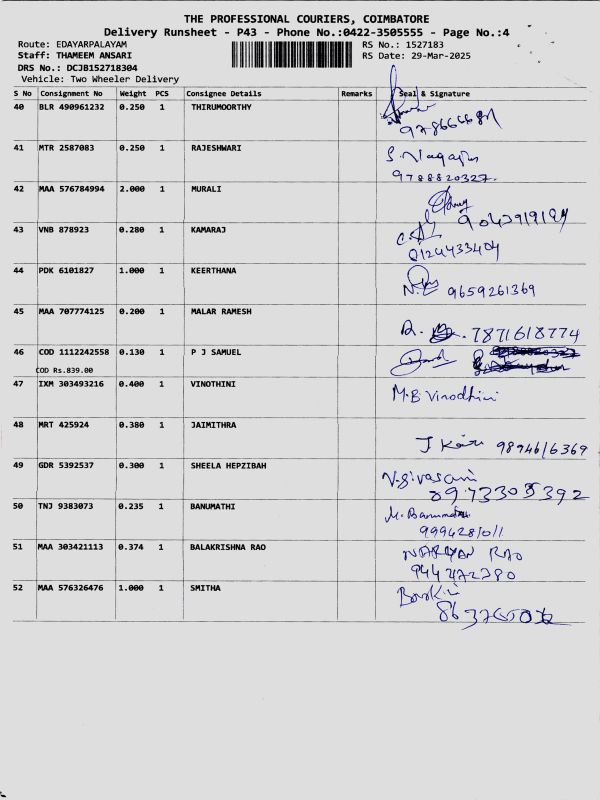 THE PROFESSIONAL COURIERS, COIMBATORE
Delivery Runsheet - P43 - Phone No.:0422-3505555 - Page No.:4
Route: EDAYARPALAYAM RS No.: 1527183
Staff: THAMEEM ANSARI RS Date: 29-Mar-2025
DRS No.: DCJB152718304
Vehicle: Two Wheeler Delivery
S No Consignment No Weight PCS Consignee Details Remarks Seal & Signature
40 BLR 490961232 0.250 1 THIRUMOORTHY
41 MTR 2587083 0.250 1 RAJESHWARI
9788820327.
42 MAA 576784994 2.000 1 MURALI
43 VNB 878923 0.280 1 KAMARAJ
44 PDK 6101827 1.000 1 KEERTHANA
9659261369
45 MAA 707774125 0.200 1 MALAR RAMESH
7871618774
46 COD 1112242558 0.130 1 P J SAMUEL
COD Rs.839.00
47 IXM 303493216 0.400 1 VINOTHINI
M.B Vinodhini
48 MRT 425924 0.380 1 JAIMITHRA
9894616369
49 GDR 5392537 0.300 1 SHEELA HEPZIBAH
50 TNJ 9383073 0.235 1 BANUMATHI
M. Banumathi
51 MAA 303421113 0.374 1 BALAKRISHNA RAO
NARAYAN RAO
52 MAA 576326476 1.000 1 SMITHA